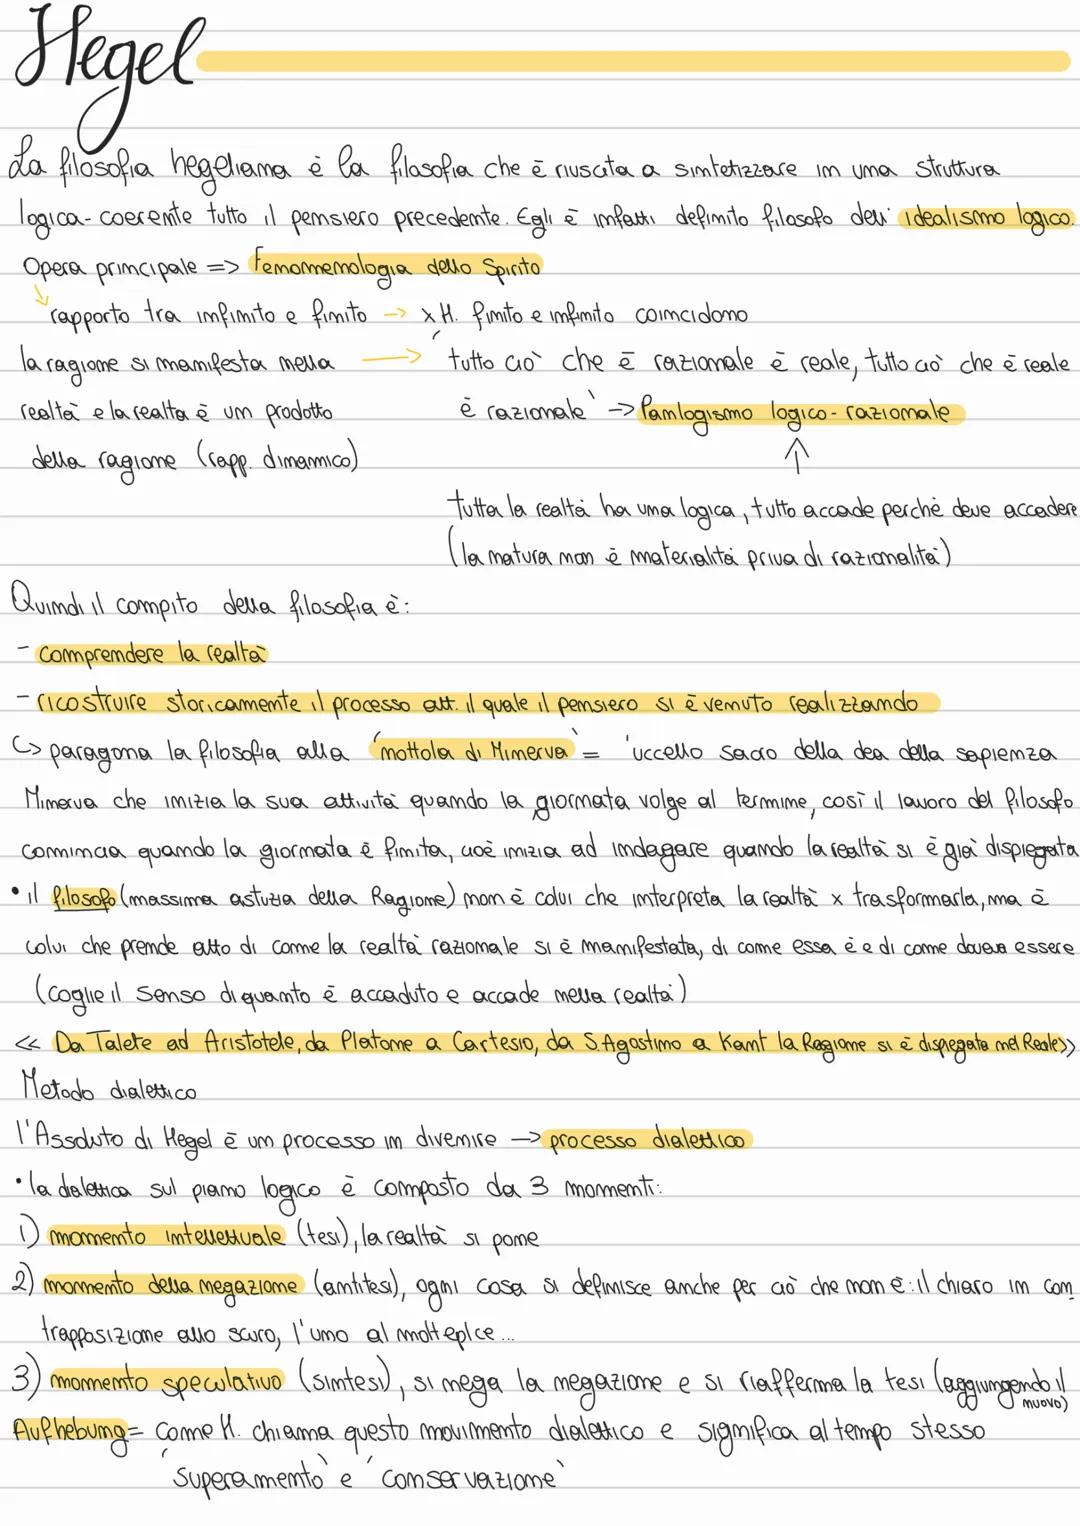 Hegel
La filosofia hegeliana è la filosofia che è riuscita a sintetizzare in una struttura
logica-coerente tutto il pensiero precedente. Egli è infatti definito filosofo dell'idealismo logico.
Opera principale => Fenomenologia dello Spirito
rapporto tra infinito e finito -> x H. finito e infinito coincidono
la ragione si manifesta nella -> 'tutto ciò che è razionale è reale, tutto ciò che è reale
realtà e la realtà è un prodotto è razionale' -> Panlogismo logico-razionale
della ragione (rapp. dinamico)
tutta la realtà ha una logica, tutto accade perché deve accadere
(la natura non è materialità priva di razionalità)
Quindi il compito della filosofia è:
- comprendere la realtà
- ricostruire storicamente il processo att. il quale il pensiero si è venuto realizzando
↳ paragona la filosofia alla 'nottola di Minerva' = 'uccello sacro della dea della sapienza
Minerva che inizia la sua attività quando la giornata volge al termine, così il lavoro del filosofo
comincia quando la giornata è finita, cioè inizia ad indagare quando la realtà si è già dispiegata
• il filosofo (massima astuzia della Ragione) non è colui che interpreta la realtà x trasformarla, ma è
colui che prende atto di come la realtà razionale si è manifestata, di come essa è e di come doveva essere
(coglie il senso di quanto è accaduto e accade nella realtà)
<< Da Talete ad Aristotele, da Platone a Cartesio, da S.Agostino a Kant la Ragione si è dispiegata nel Reale>>
Metodo dialettico
l'Assoluto di Hegel è un processo in divenire -> processo dialettico
• la dialettica sul piano logico è composto da 3 momenti:
1) momento intellettuale (tesi), la realtà si pone
2) momento della negazione (antitesi), ogni cosa si definisce anche per ciò che non è: il chiaro in con
trapposizione allo scuro, l'uno al molteplce...
3) momento speculativo (sintesi), si nega la negazione e si riafferma la tesi (aggiungendo il
nuovo)
Aufhebung = come H. chiama questo movimento dialettico e significa al tempo stesso
'superamento' e 'conservazione'